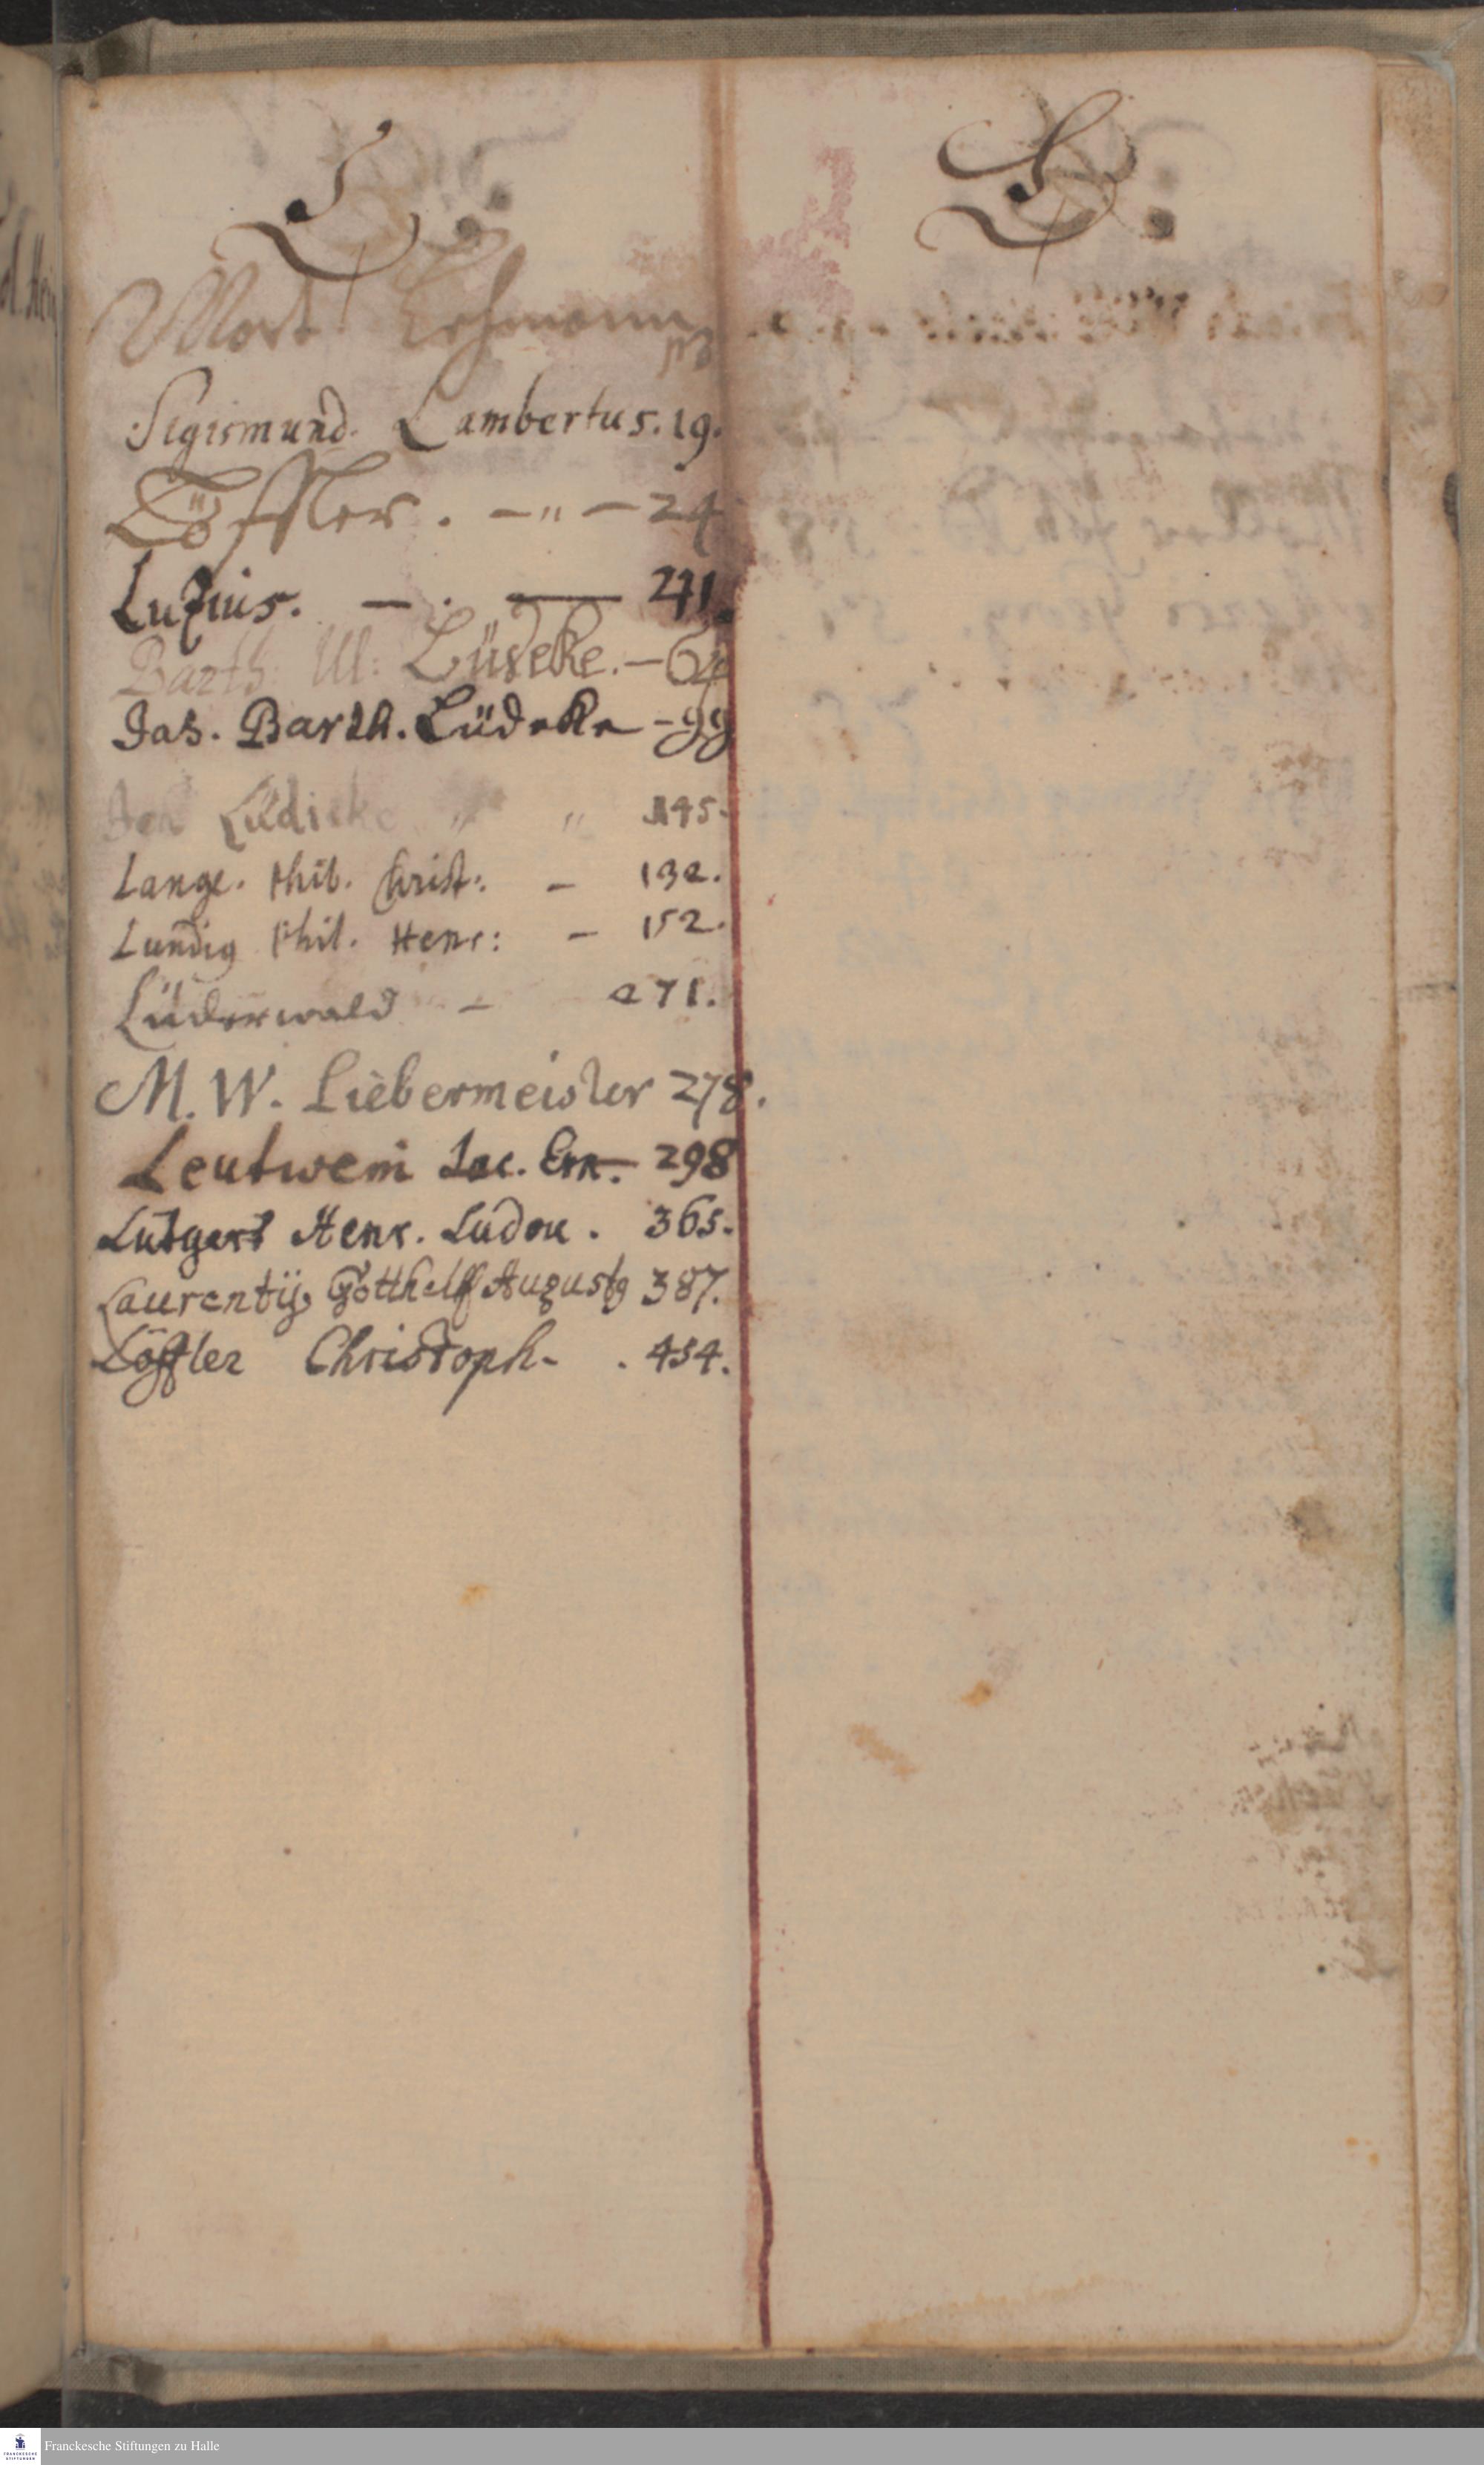 L.
L.
Mart. Lehmann
Sigismund. Lambertus. 19.
Löffler. — " — 24
Lufius. — . — 271.
Barth. Ul: Lüdeke. — 64
Jas. Barth. Lüdeke - 99
Joh Lüdicke " " 145.
Lange. Phil. Christ: — 132.
Lundig Phil. Henr: — 152.
Lüderwald — 271.
M. W. Liebermeister 278.
Leutwein Jac. Ern. 298
Lütgert Henr. Ludou. 365.
Laurentij, Gotthelf August9 387.
Löffler Christoph. . 454.
Franckesche Stiftungen zu Halle